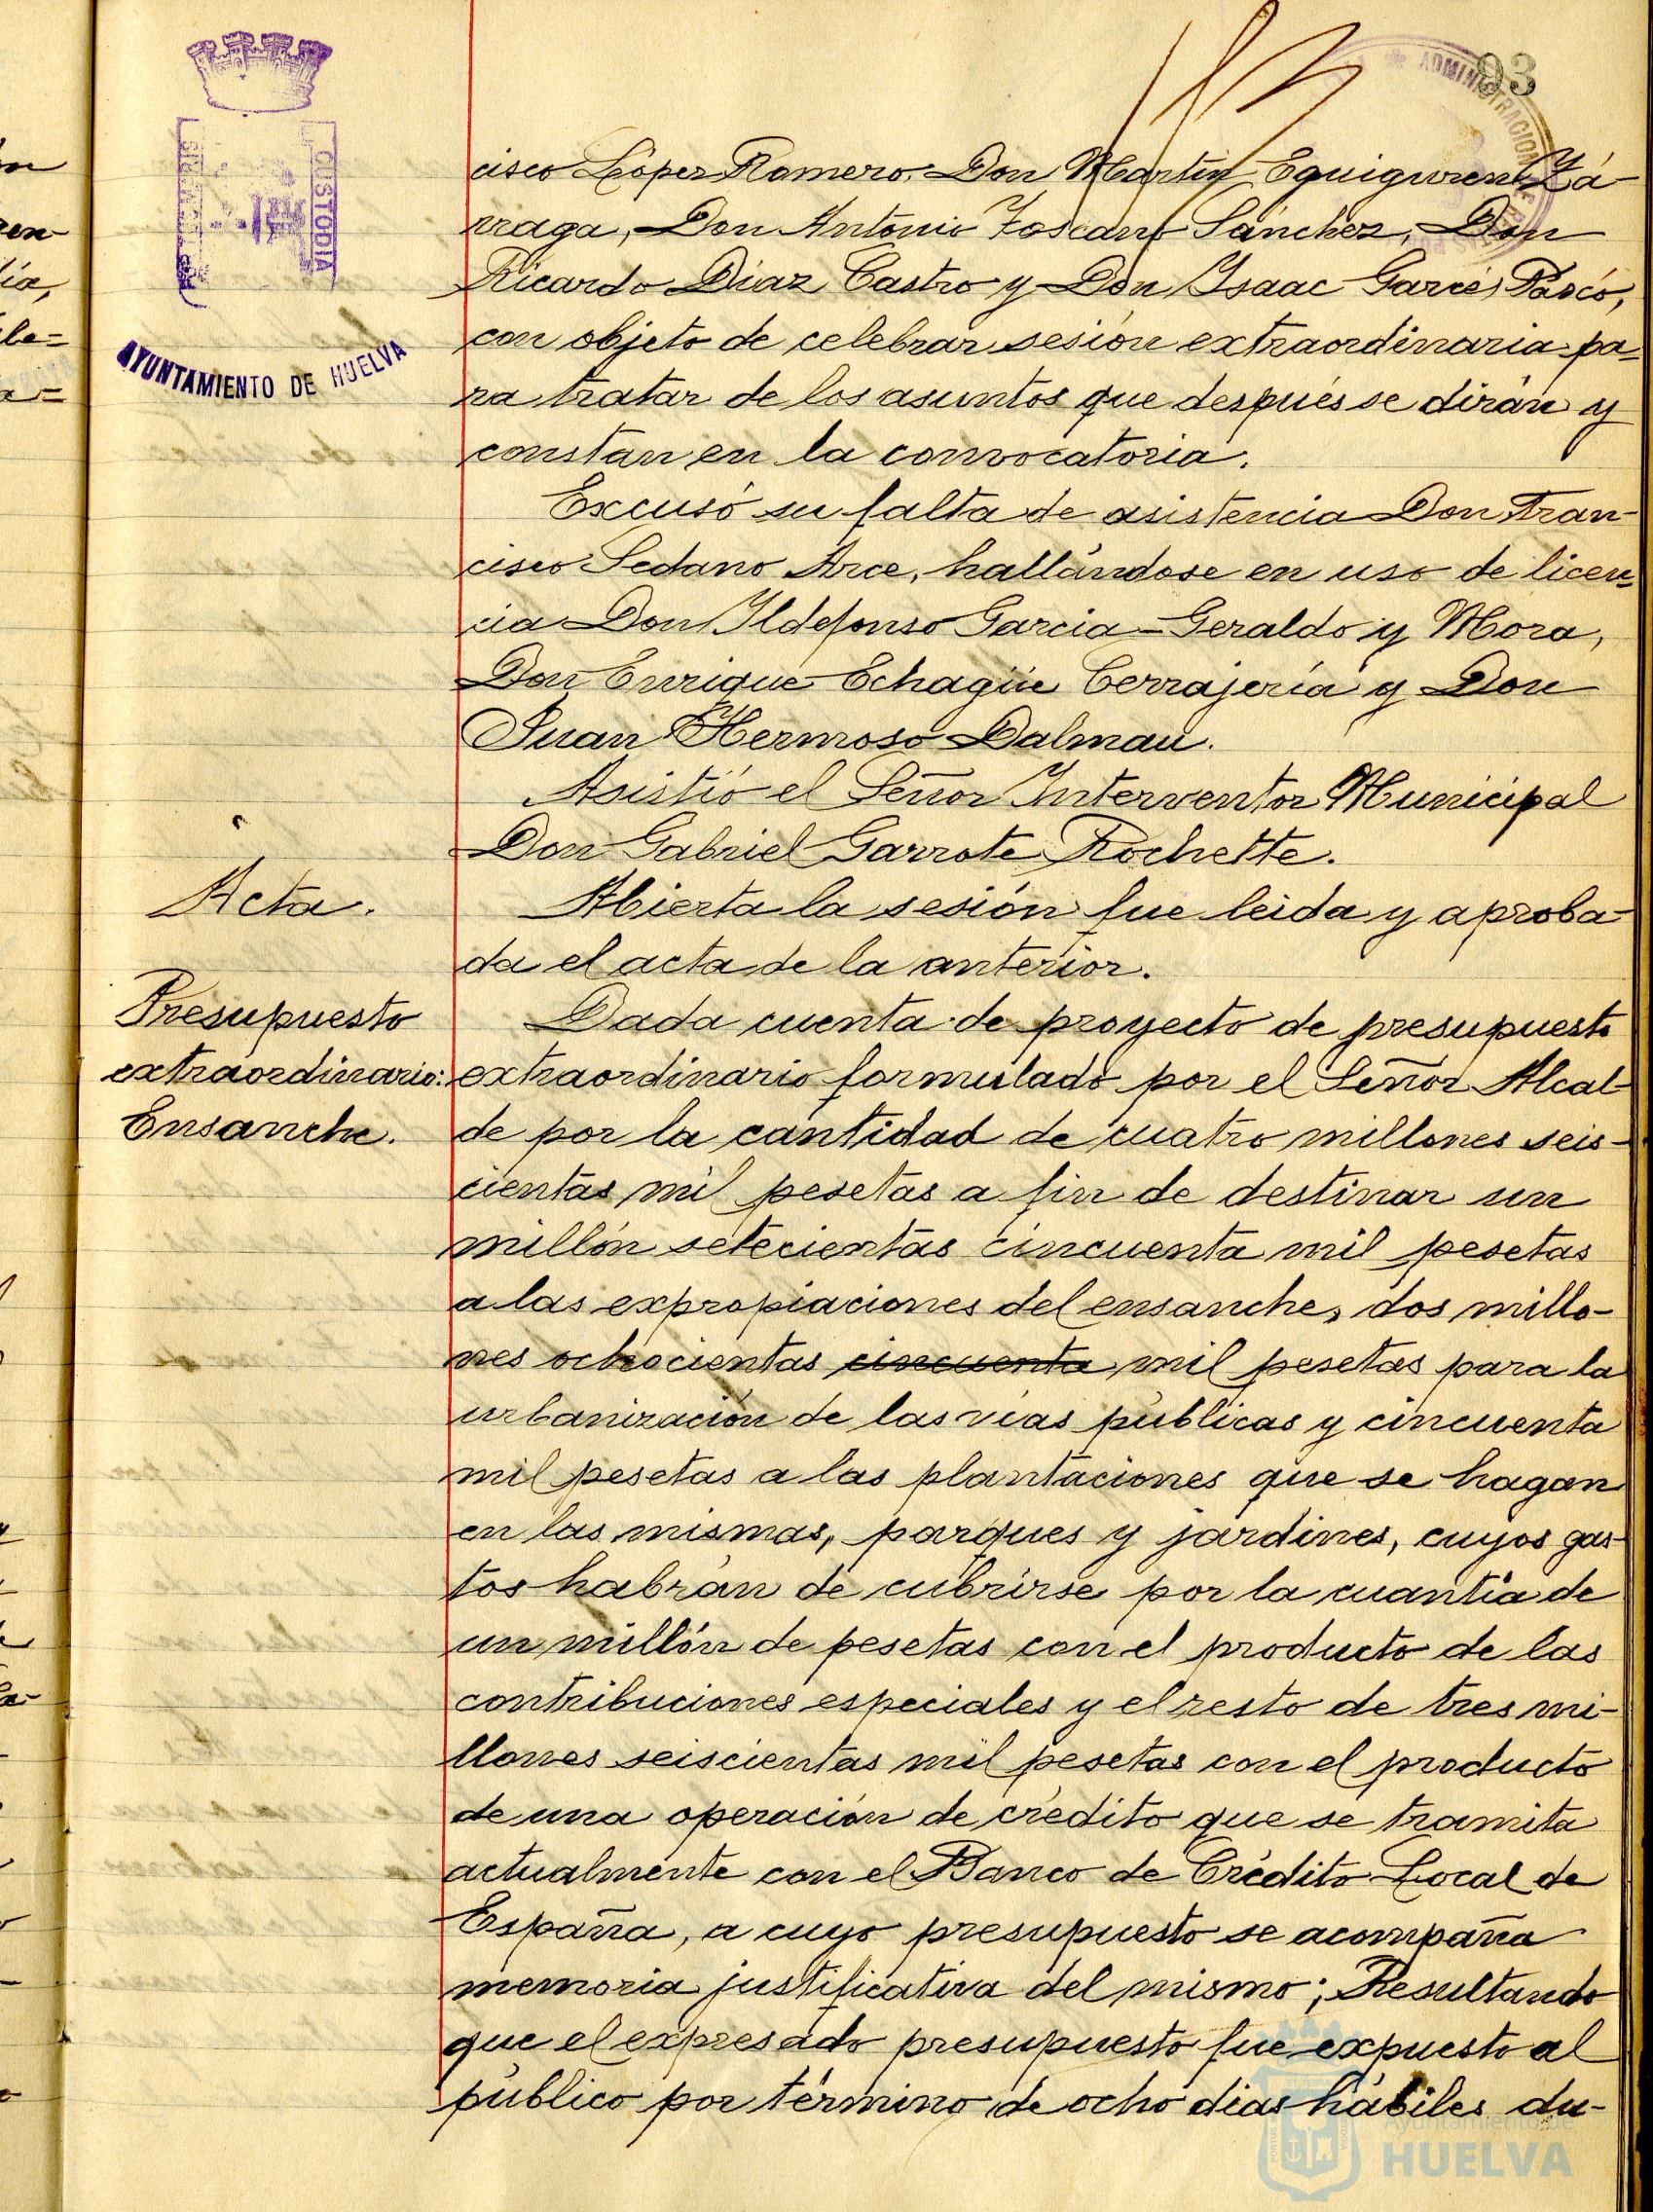 93
ADMINISTRACION DE
CUSTODIA
AYUNTAMIENTO DE HUELVA
cisco López Romero, Don Martín Eguiguren Zá-
rraga, Don Antonio Toscano Sánchez, Don
Ricardo Díaz Castro y Don Isaac Garcés
con objeto de celebrar sesión extraordinaria pa-
ra tratar de los asuntos que después se dirán y
constan en la convocatoria.
Excusó su falta de asistencia Don Fran-
cisco Sedano Arce, hallándose en uso de licen-
cia Don Ildefonso Garcia-Geraldo y Mora,
Don Enrique Echagüe Cerrajería y Don
Juan Hermoso Dalmau.
Asistió el Señor Interventor Municipal
Don Gabriel Garrote Rochette.
Acta.
Abierta la sesión fue leida y aproba-
da el acta de la anterior.
Presupuesto
extraordinario:
Ensanche.
Dada cuenta de proyecto de presupuesto
extraordinario formulado por el Señor Alcal-
de por la cantidad de cuatro millones seis-
cientas mil pesetas a fin de destinar un
millón setecientas cincuenta mil pesetas
a las expropiaciones del ensanche, dos millo-
nes ochocientas cincuenta mil pesetas para la
urbanización de las vías públicas y cincuenta
mil pesetas a las plantaciones que se hagan
en las mismas, parques y jardines, cuyos gas-
tos habrán de cubrirse por la cuantía de
un millón de pesetas con el producto de las
contribuciones especiales y el resto de tres mi-
llones seiscientas mil pesetas con el producto
de una operación de crédito que se tramita
actualmente con el Banco de Crédito Local de
España, a cuyo presupuesto se acompaña
memoria justificativa del mismo; Resultando
que el expresado presupuesto fue expuesto al
público por término de ocho días hábiles du-
Ayuntamiento de
HUELVA